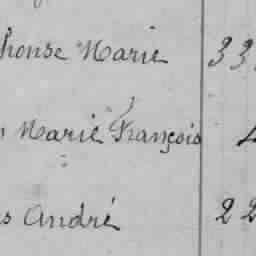 phonse Marie 33
Marie François 4
s André 22